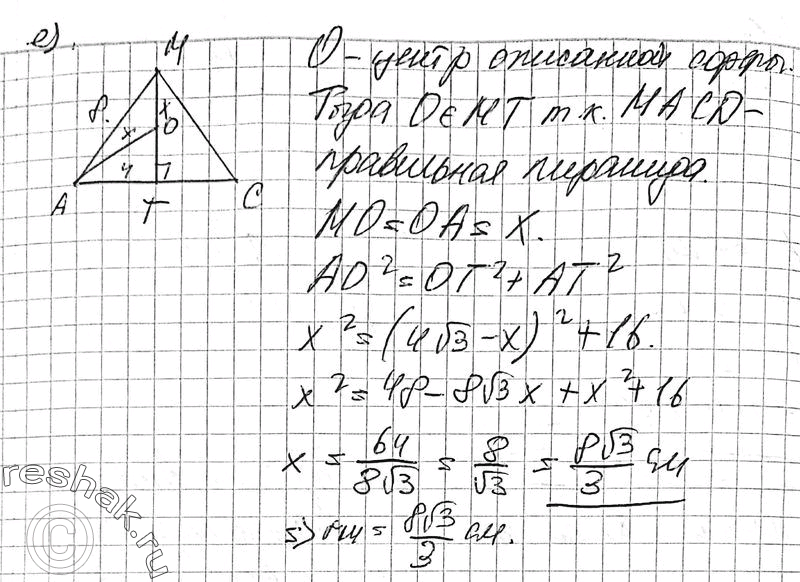 е).
M
8.
x
x
O
4
A
T
C
O - центр описанной сферы.
Тогда O∈MT т.к. MACD -
правильная пирамида.
MO = OA = x.
AO² = OT² + AT²
x² = (4√3 - x)² + 16.
x² = 48 - 8√3 x + x² + 16
x = 64/8√3 = 8/√3 = 8√3/3 см
=> = 8√3/3 см.
reshak.ru
©